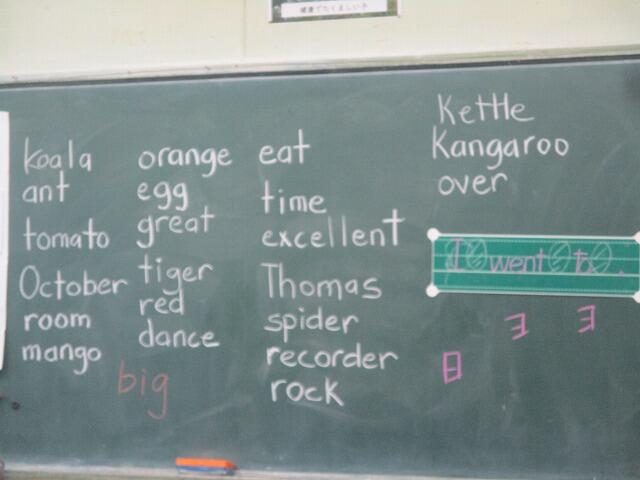 健康でたくましい子
koala
ant
tomato
October
room
mango
orange
egg
great
tiger
red
dance
big
eat
time
excellent
Thomas
spider
recorder
rock
Kettle
Kangaroo
over
I went to .
日 ヨ ヨ